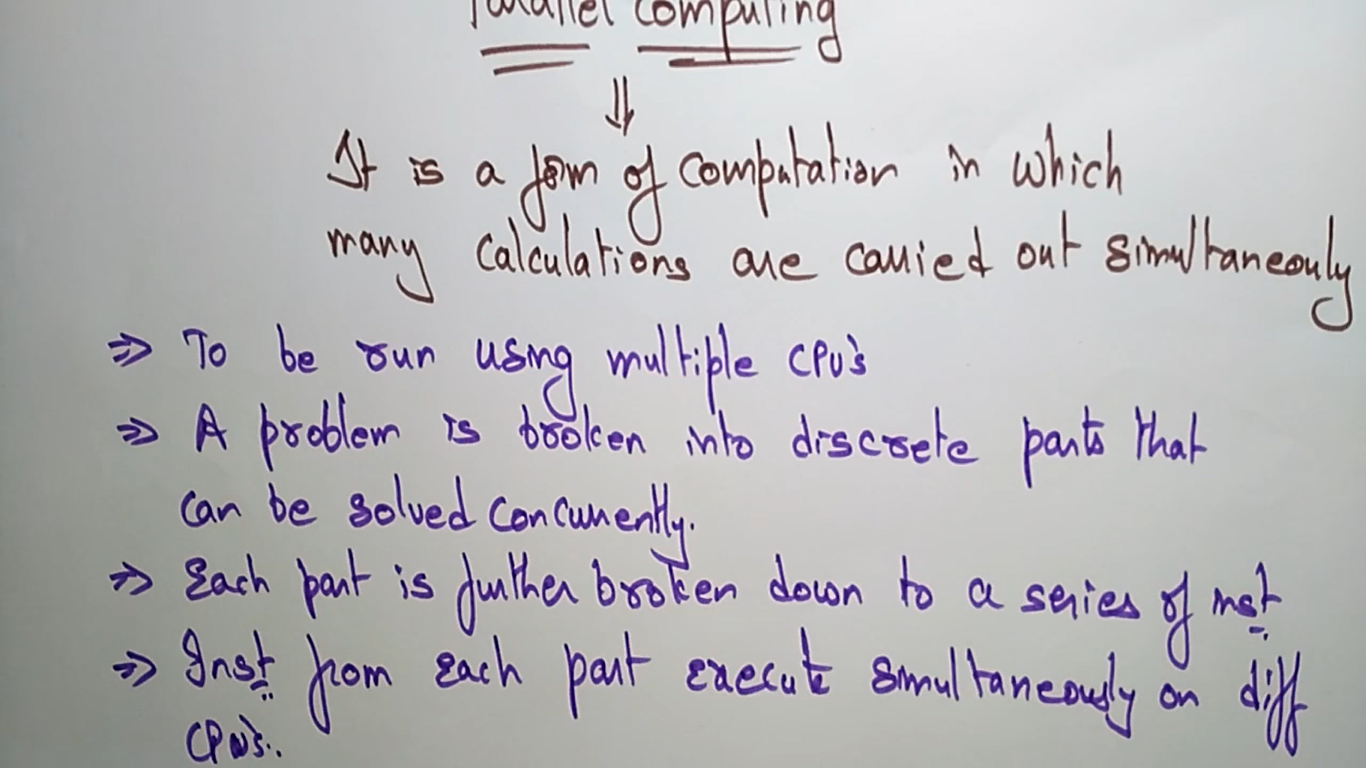 Parallel Computing
⇓
It is a form of computation in which
many calculations are carried out simultaneously
⇒ To be run using multiple CPU's
⇒ A problem is broken into discrete parts that
can be solved concurrently.
⇒ Each part is further broken down to a series of inst
⇒ Inst from each part execute simultaneously on diff
CPU's..